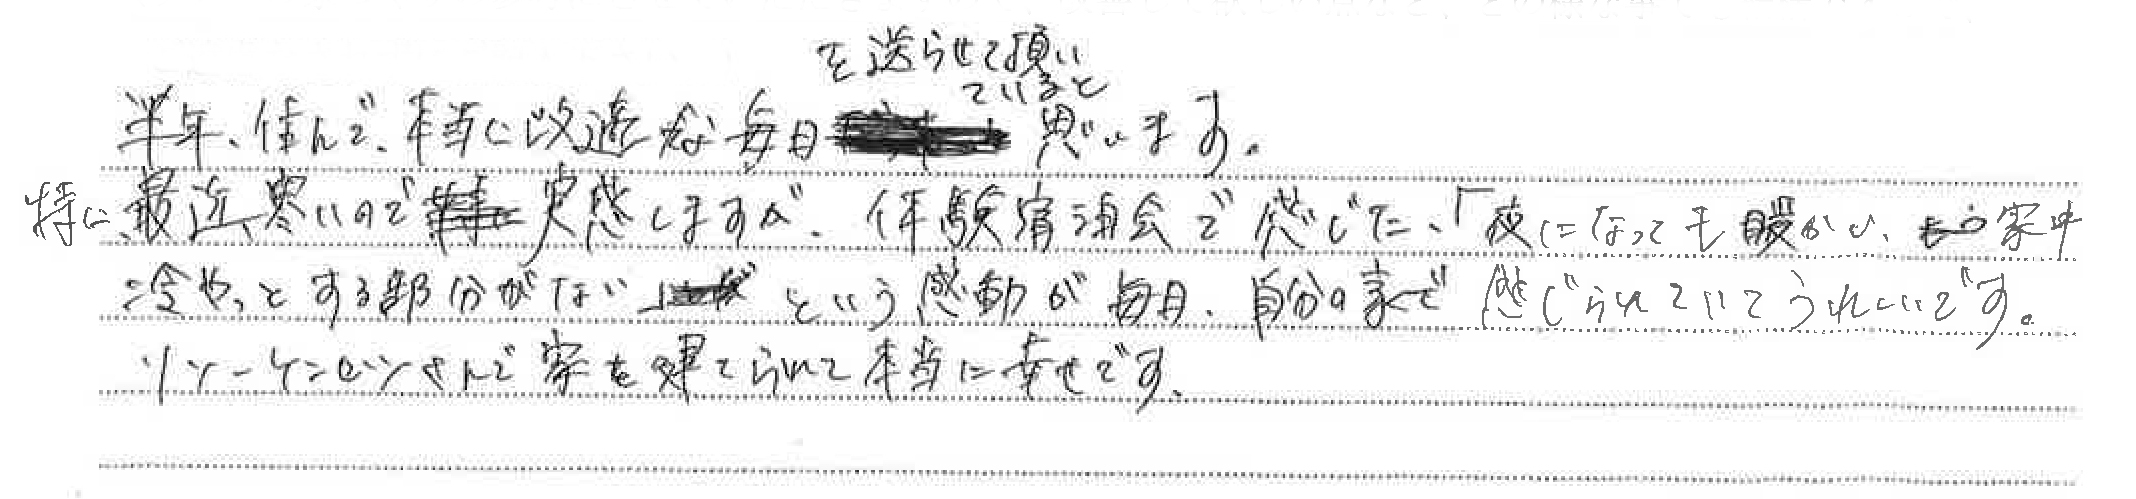 を送らせて頂い
ていると
半年、住んで、本当に快適な毎日 思います。
特に最近寒いので 実感しますが、体験宿泊会で感じた、「夜になっても暖かい、家中
冷やっとする部分がない」という感動が毎日、自分の家で感じられていてうれしいです。
リソーケンセツさんで家を建てられて本当に幸せです。